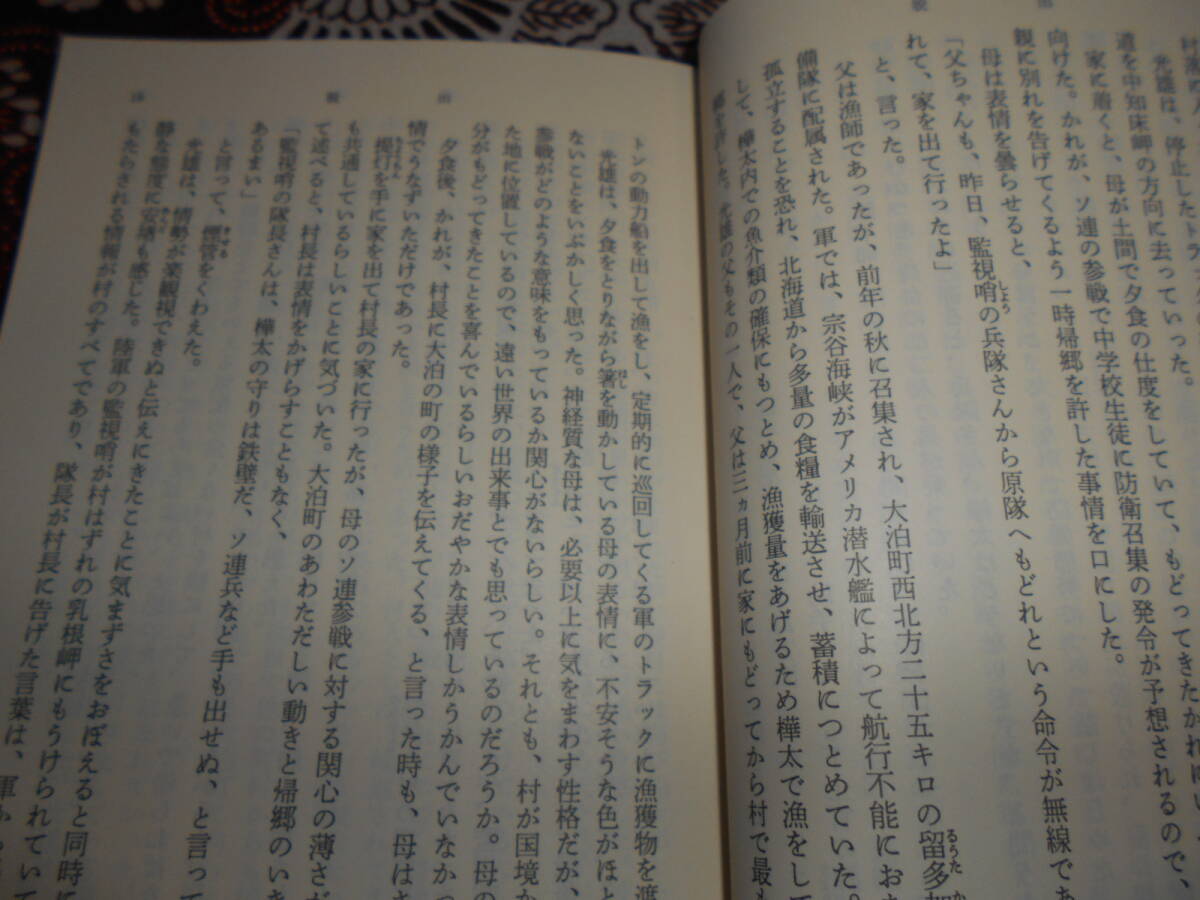 脱
光雄は、停止したトラ
道を中知床岬の方向に去っていった。
家に着くと、母が土間で夕食の仕度をしていて、もどってきたかれは
向けた。かれが、ソ連の参戦で中学校生徒に防衛召集の発令が予想されるので、
親に別れを告げてくるよう一時帰郷を許した事情を口にした。
母は表情を曇らせると、
「父ちゃんも、昨日、監視哨の兵隊さんから原隊へもどれという命令が無線であ
れて、家を出て行ったよ」
と、言った。
父は漁師であったが、前年の秋に召集され、大泊町西北方二十五キロの留多加
備隊に配属された。軍では、宗谷海峡がアメリカ潜水艦によって航行不能におち
孤立することを恐れ、北海道から多量の食糧を輸送させ、蓄積につとめていた。
して、樺太内での魚介類の確保にもつとめ、漁獲量をあげるため樺太で漁をして
郷を許した。光雄の父もその一人で、父は三ヵ月前に家にもどってから村で最も
出
脱
トンの動力船を出して漁をし、定期的に巡回してくる軍のトラックに漁獲物を渡
光雄は、夕食をとりながら箸を動かしている母の表情に、不安そうな色がほと
ないことをいぶかしく思った。神経質な母は、必要以上に気をまわす性格だが、
参戦がどのような意味をもっているか関心がないらしい。それとも、村が国境か
た地に位置しているので、遠い世界の出来事とでも思っているのだろうか。母の
分がもどってきたことを喜んでいるらしいおだやかな表情しかうかんでいなかっ
夕食後、かれが、村長に大泊の町の様子を伝えてくる、と言った時も、母はさ
情でうなずいただけであった。
提灯を手に家を出て村長の家に行ったが、母のソ連参戦に対する関心の薄さだ
も共通しているらしいことに気づいた。大泊町のあわただしい動きと帰郷のいき
て述べると、村長は表情をかげらすこともなく、
「監視哨の隊長さんは、樺太の守りは鉄壁だ、ソ連兵など手も出せぬ、と言って
あるまい」
と言って、煙管をくわえた。
光雄は、情勢が楽観視できぬと伝えにきたことに気まずさをおぼえると同時に
静な態度に安堵も感じた。陸軍の監視哨が村はずれの乳根岬にもうけられていて
もたらされる情報が村のすべてであり、隊長が村長に告げた言葉は、軍か